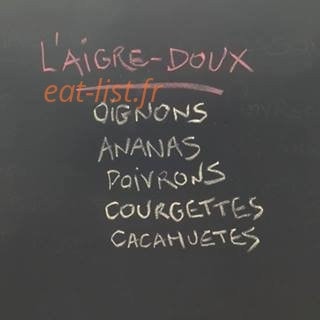 L'AIGRE-DOUX
eat-list.fr
OIGNONS
ANANAS
POIVRONS
COURGETTES
CACAHUETES